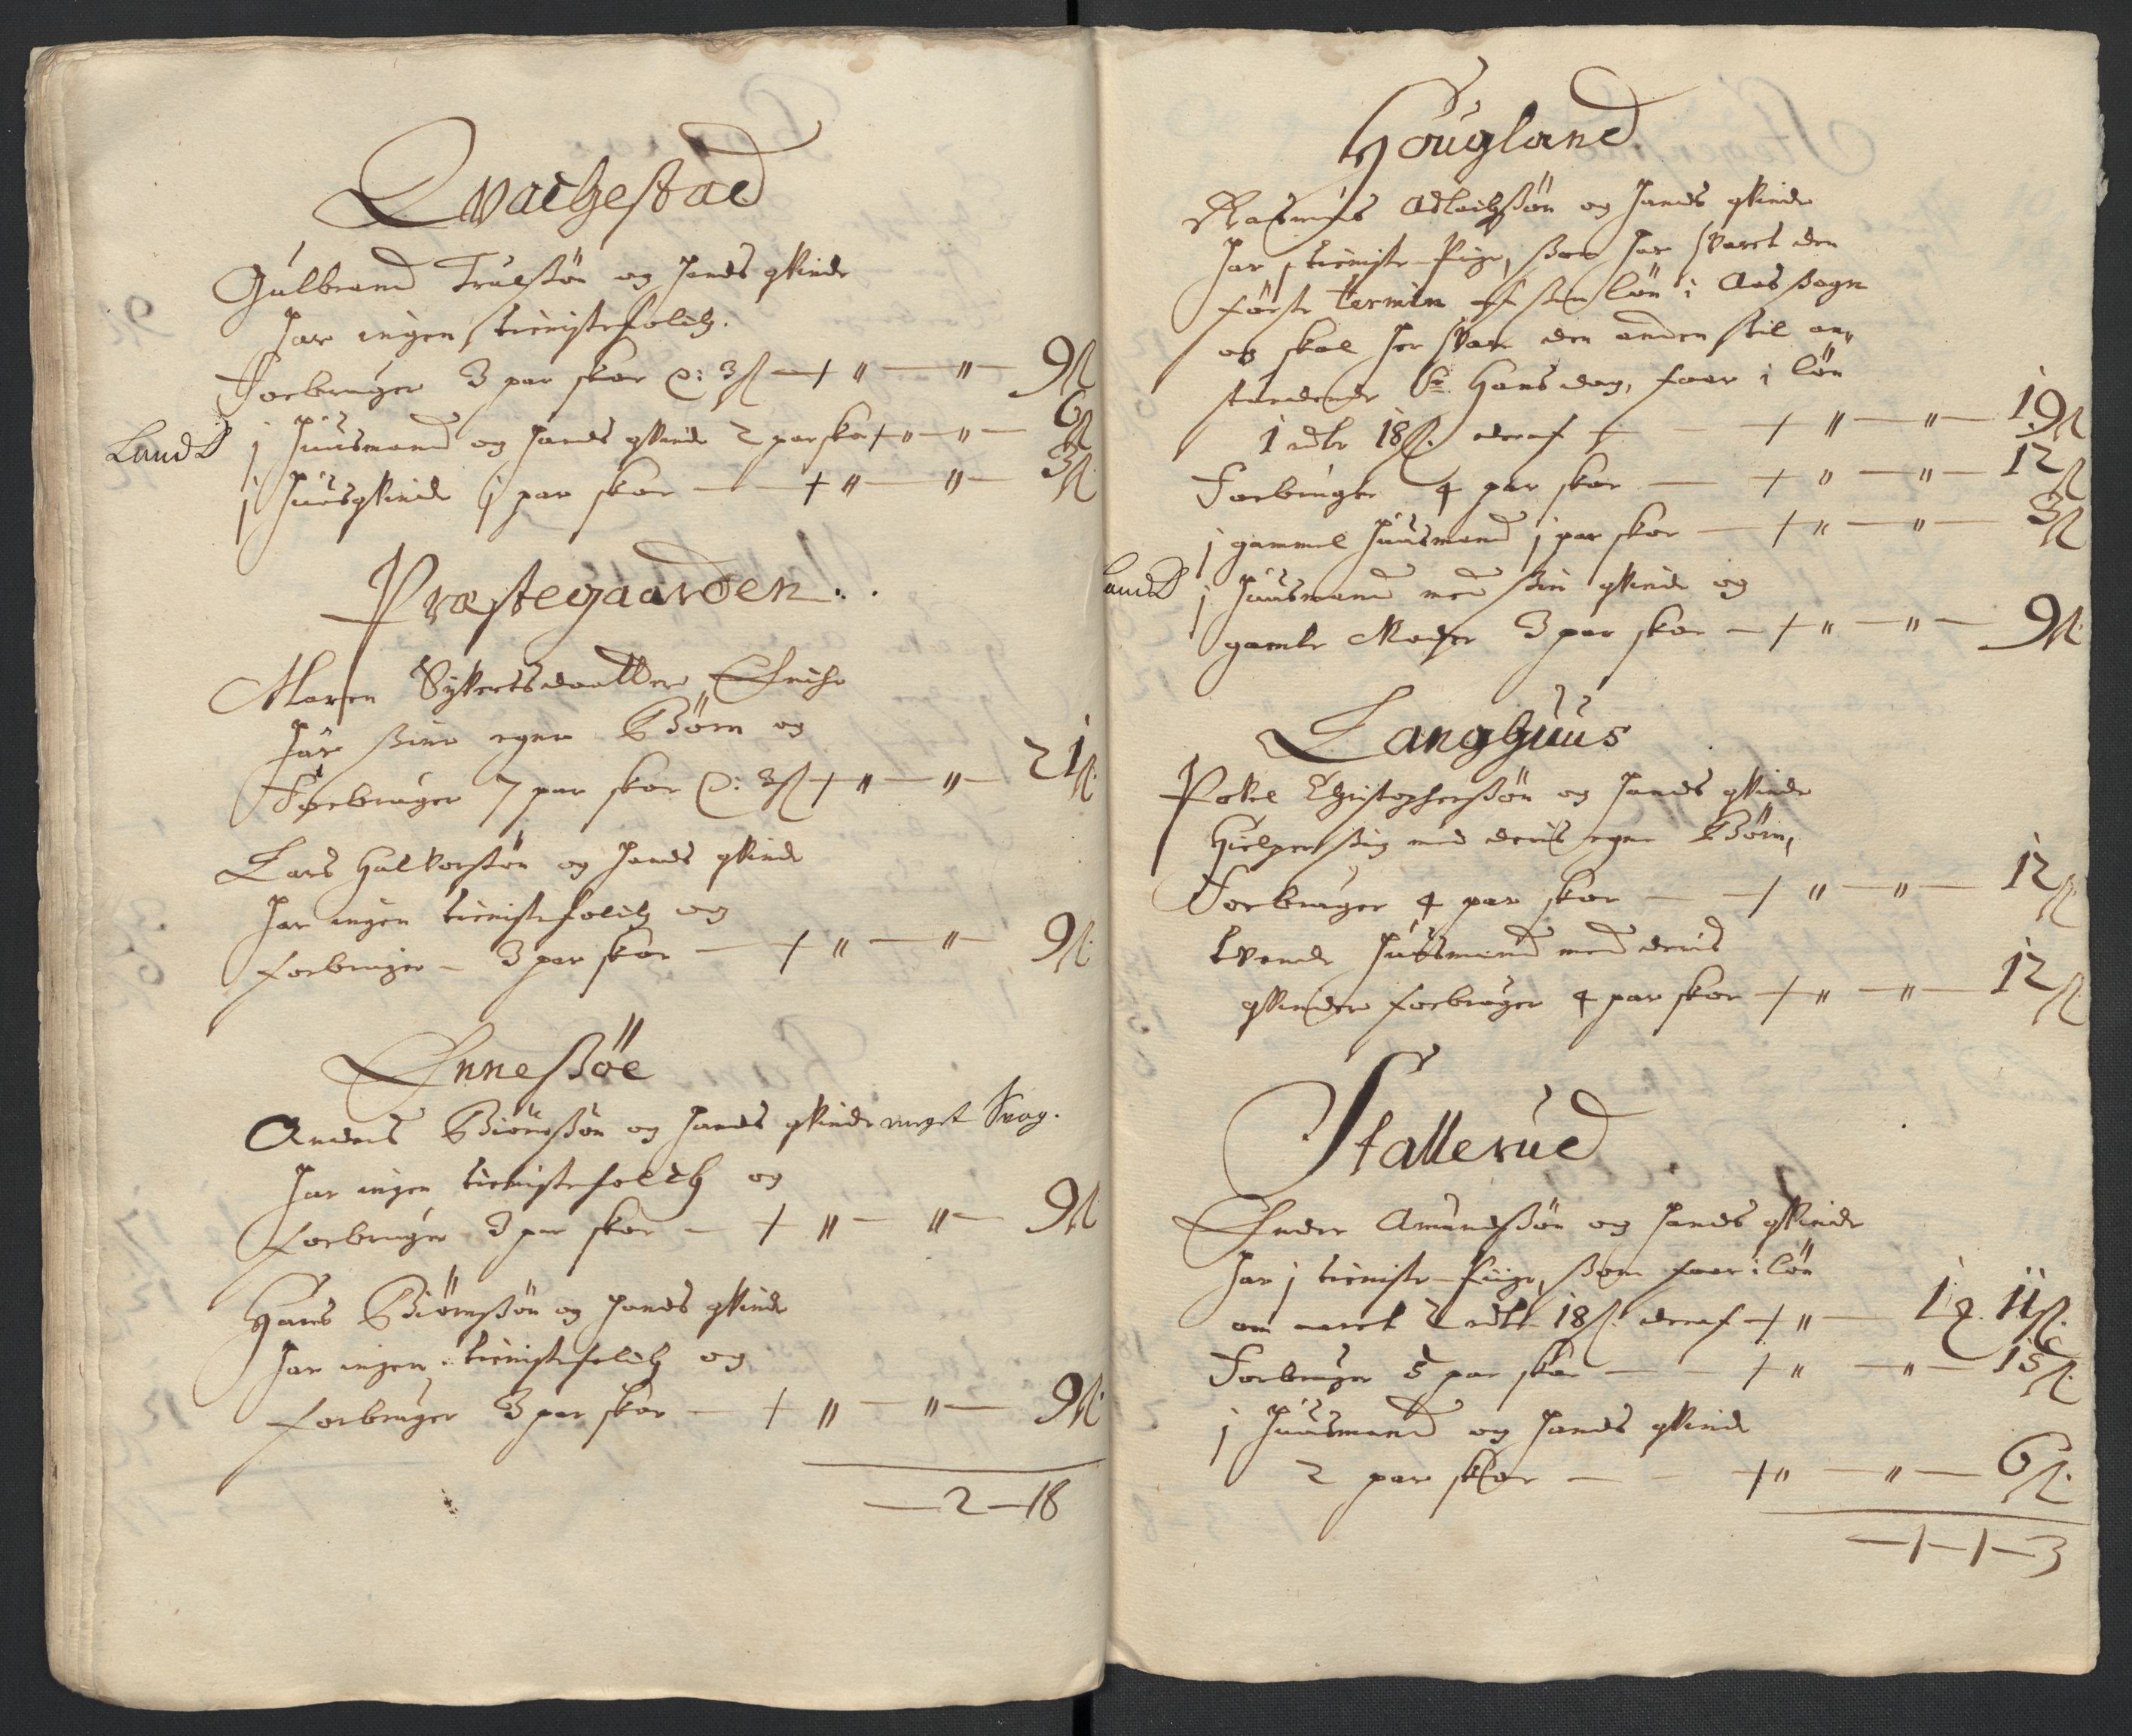 Qvachestad
Gulbrand Truelsøn og hands qvinde
har ingen tienistefolch.
Forbruger 3 par skoe a: 3ß + " — " — 9ß
Lands j huusmand og hands qvinde 2 par skoe + " — " — 6ß
j huusqvinde j par skoe — + " — " — 3ß
Præstegaarden..
Maren Syvertsdaatter, Enche
har sine egne Børn og
Forbruger 7 par skoe a: 3ß + " — " — 21ß
Lars Halvorsøn og hands qvinde
har ingen tienistefolch og
forbruger – 3 par skoe — + " — " — 9ß
Ennesßøe
Anders Biørnsøn og hands qvinde meget Svag.
har ingen tienistefolch og
forbruger 3 par skoe – + " — " — 9ß
Hans Biørnsøn og hands qvinde
har ingen tienistefolch og
forbruger 3 par skoe – + " — " — 9ß
— 2 — 18
Hougland
Rasmus Adlachsøn og hands qvinde
har j tieniste Pige, som har svaret den
første termin af sin løn i Aas Sogn
og skal her svare den anden til an„
staaende St Hansdag, faar i løn
1 rdlr 18ß. deraf + — + " — " — 19ß
Forbruger 4 par skoe — + " — " — 12ß
j gammel huusmand j par skoe — + " — " — 3ß
Lands j huusmand med sin qvinde og
gamle Moder 3 par skoe — + " — " — 9ß.
Langhuus
Povel Christophersøn og hands qvinde
Hielper sig med deris egne Børn,
Forbruger 4 par skoe — + " — " — 12ß.
tvende huusmænd med deris
qvinder forbruger 4 par skoe + " — " — 12ß.
Stallerud
Peder Amundsøn og hands qvinde
har j tieniste Piige, som faar i løn
om aaret 2 rdlr 18ß. deraf + " — 1 ₰. 11ß.
Forbruger 5 par skoe — + " — " — 15ß.
j huusmand og hands qvinde
2 par skoe — + " — " — 6ß.
— 1 — 1 — 3